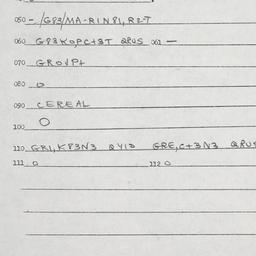 050 - /GP3/MA-RIN81, R2T
060 GP3KOPC+3T QRUS 061 -
070 GROVP+
080 O
090 CEREAL
100 O
110 GR1,KP3N3 QY13 GRE,C+3N3 QRUS
111 O 112 O